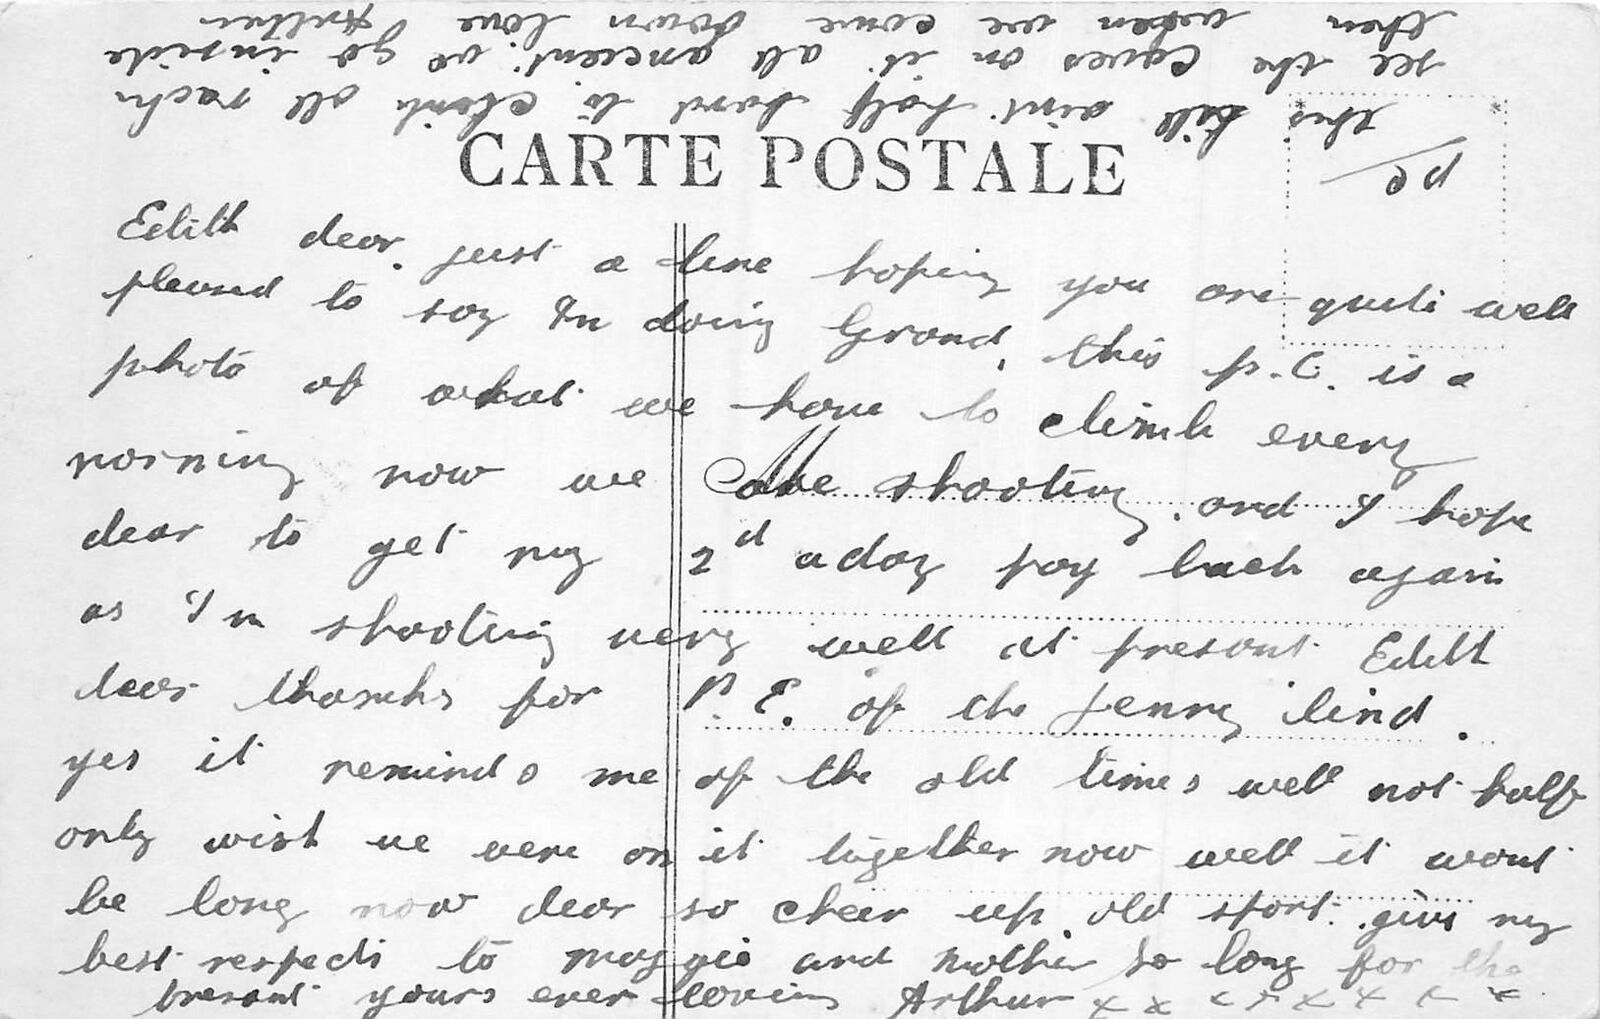 CARTE POSTALE
Edith dear. just a line hoping you are quite well
pleased to say Im doing Grand, this p.C. is a
photo of what we have to climb every
morning now we are shooting. and I hope
dear to get my 2d a day pay back again
as I'm shooting very well at present. Edith
dear thanks for P.C. of the Jenny Lind.
yes it remind s me of the old times well not half
only wish we were on it together now well it wont
be long now dear so cheer up old sport. give my
best respects to maggie and mother So long for the
present yours ever loving Arthur x x x x x x x x
PC
this hill aint half hard to climb all rocks
see the caves on it. all ancient. we go inside
then when we come down love Arthur